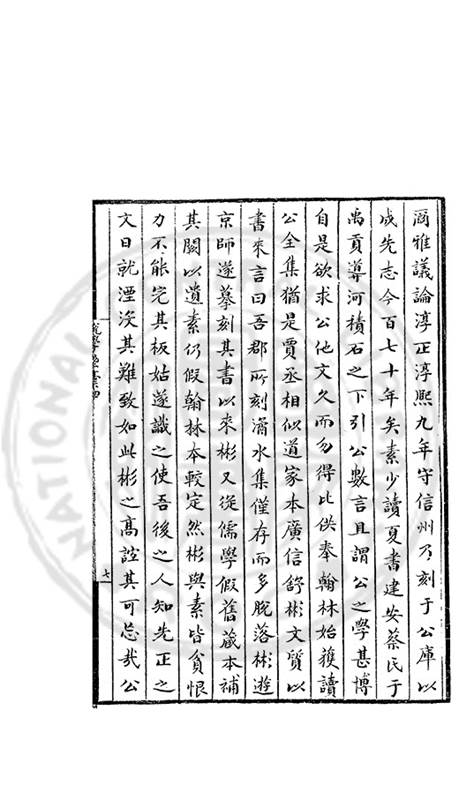 涵雅議論淳正淳熙九年守信州乃刻于公庫以
成先志今百七十年矣素少讀夏書建安蔡氏于
禹貢導河積石之下引公數言且謂公之學甚博
自是欲求公他文久而勿得比供奉翰林始獲讀
公全集猶是賈丞相似道家本廣信舒彬文質以
書來言曰吾郡所刻滑水集僅存而多脫落彬遊
京師遂摹刻其書以來彬又從儒學假舊藏本補
其闕以遺素仍假翰林本較定然彬與素皆貧恨
力不能完其板姑遂識之使吾後之人知先正之
文日就湮沒其難致如此彬之高誼其可忘哉公
七
NATIONAL